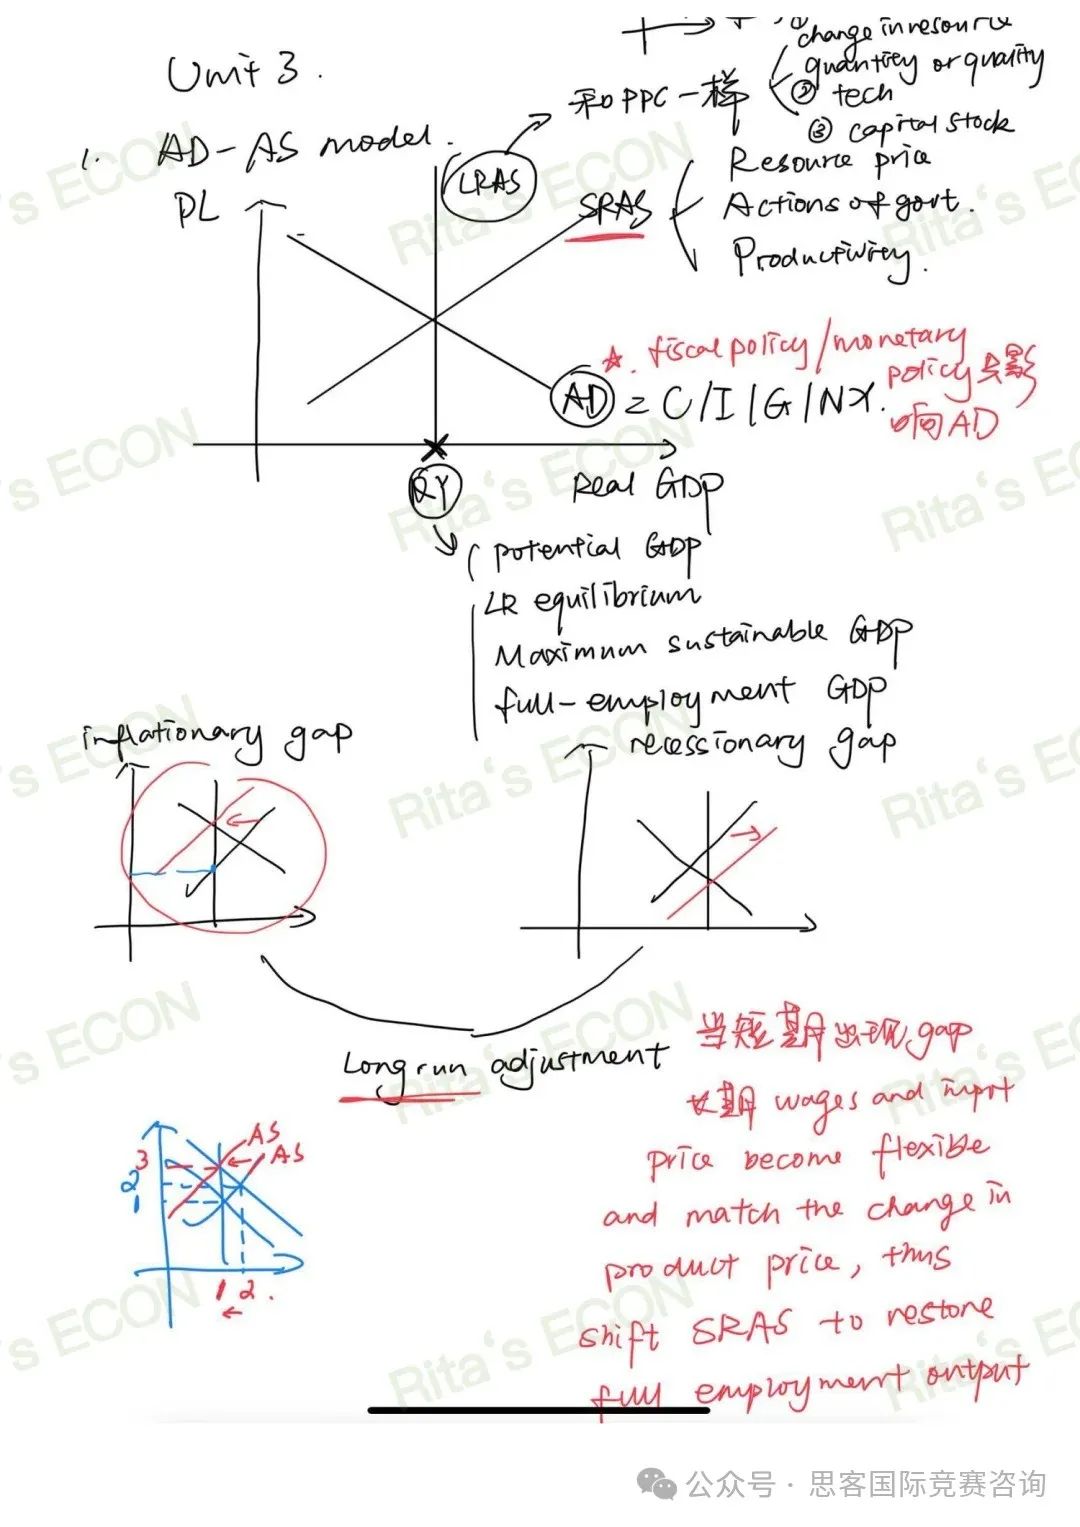 change in resource
Unit 3.
quantity or quality
和PPC一样
② tech
③ capital stock
1. AD-AS model.
LRAS
Resource price
PL
SRAS
Actions of govt.
Productivity.
☆. fiscal policy/monetary
policy只影
响AD
AD = C/I/G/NX.
RY
Real GDP
potential GDP
LR equilibrium
Maximum sustainable GDP
full-employment GDP
inflationary gap
recessionary gap
Long run adjustment
当短期出现gap
长期 wages and input
price become flexible
and match the change in
product price, thus
shift SRAS to restore
full employment output
AS
AS
3
2
1
1 2.
Rita's ECON
公众号 · 思客国际竞赛咨询